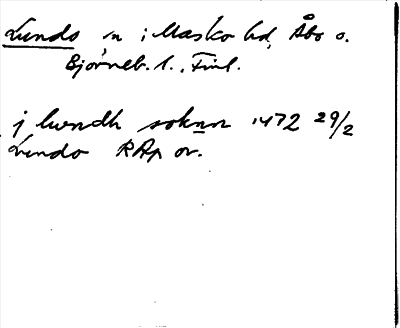 Lundo sn i Masko hd, Åbo o.
Björneb. l., Finl.
j lwndh soknn 1472 29/2
Lundo RAp or.